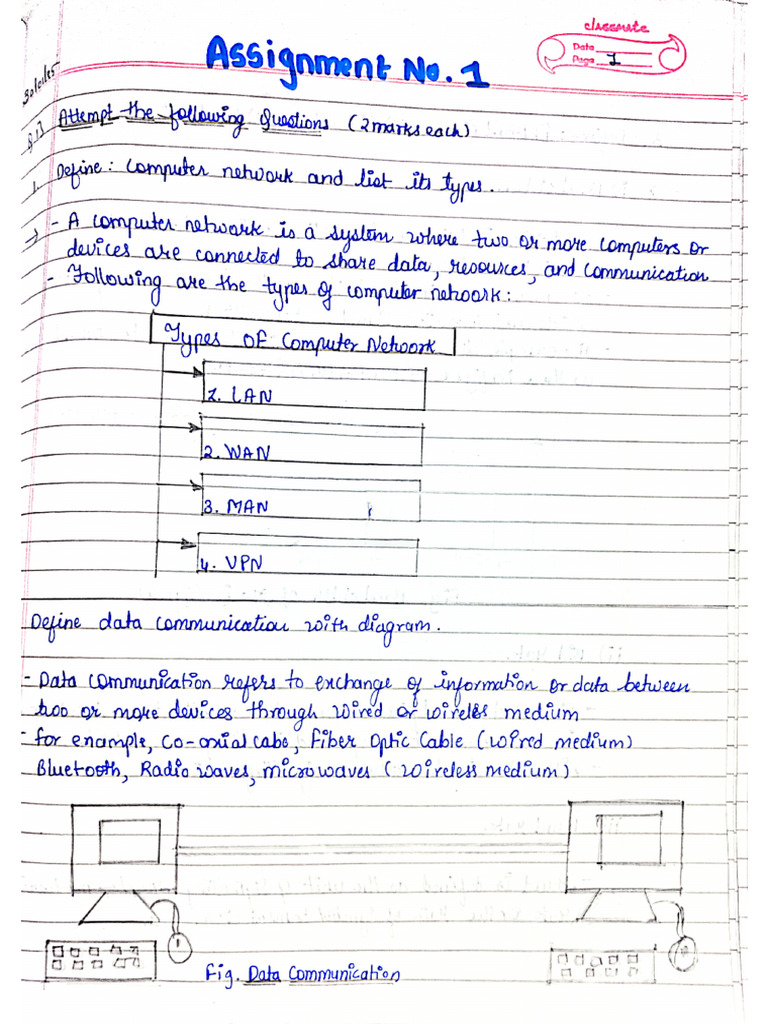 classmate
Date
Page 1
Assignment No. 1
Q.1] Attempt the following Questions (2 marks each)
1. Define: Computer network and list its types.
→ - A computer network is a system where two or more computers or
devices are connected to share data, resources, and communication
- Following are the types of computer network:
Types of Computer Network
1. LAN
2. WAN
3. MAN
4. VPN
Define data communication with diagram.
- Data communication refers to exchange of information or data between
two or more devices through wired or wireless medium
- for enample, Co-axial cabe, Fiber Optic Cable (wired medium)
Bluetooth, Radio waves, microwaves (Wireless medium)
Fig. Data Communication